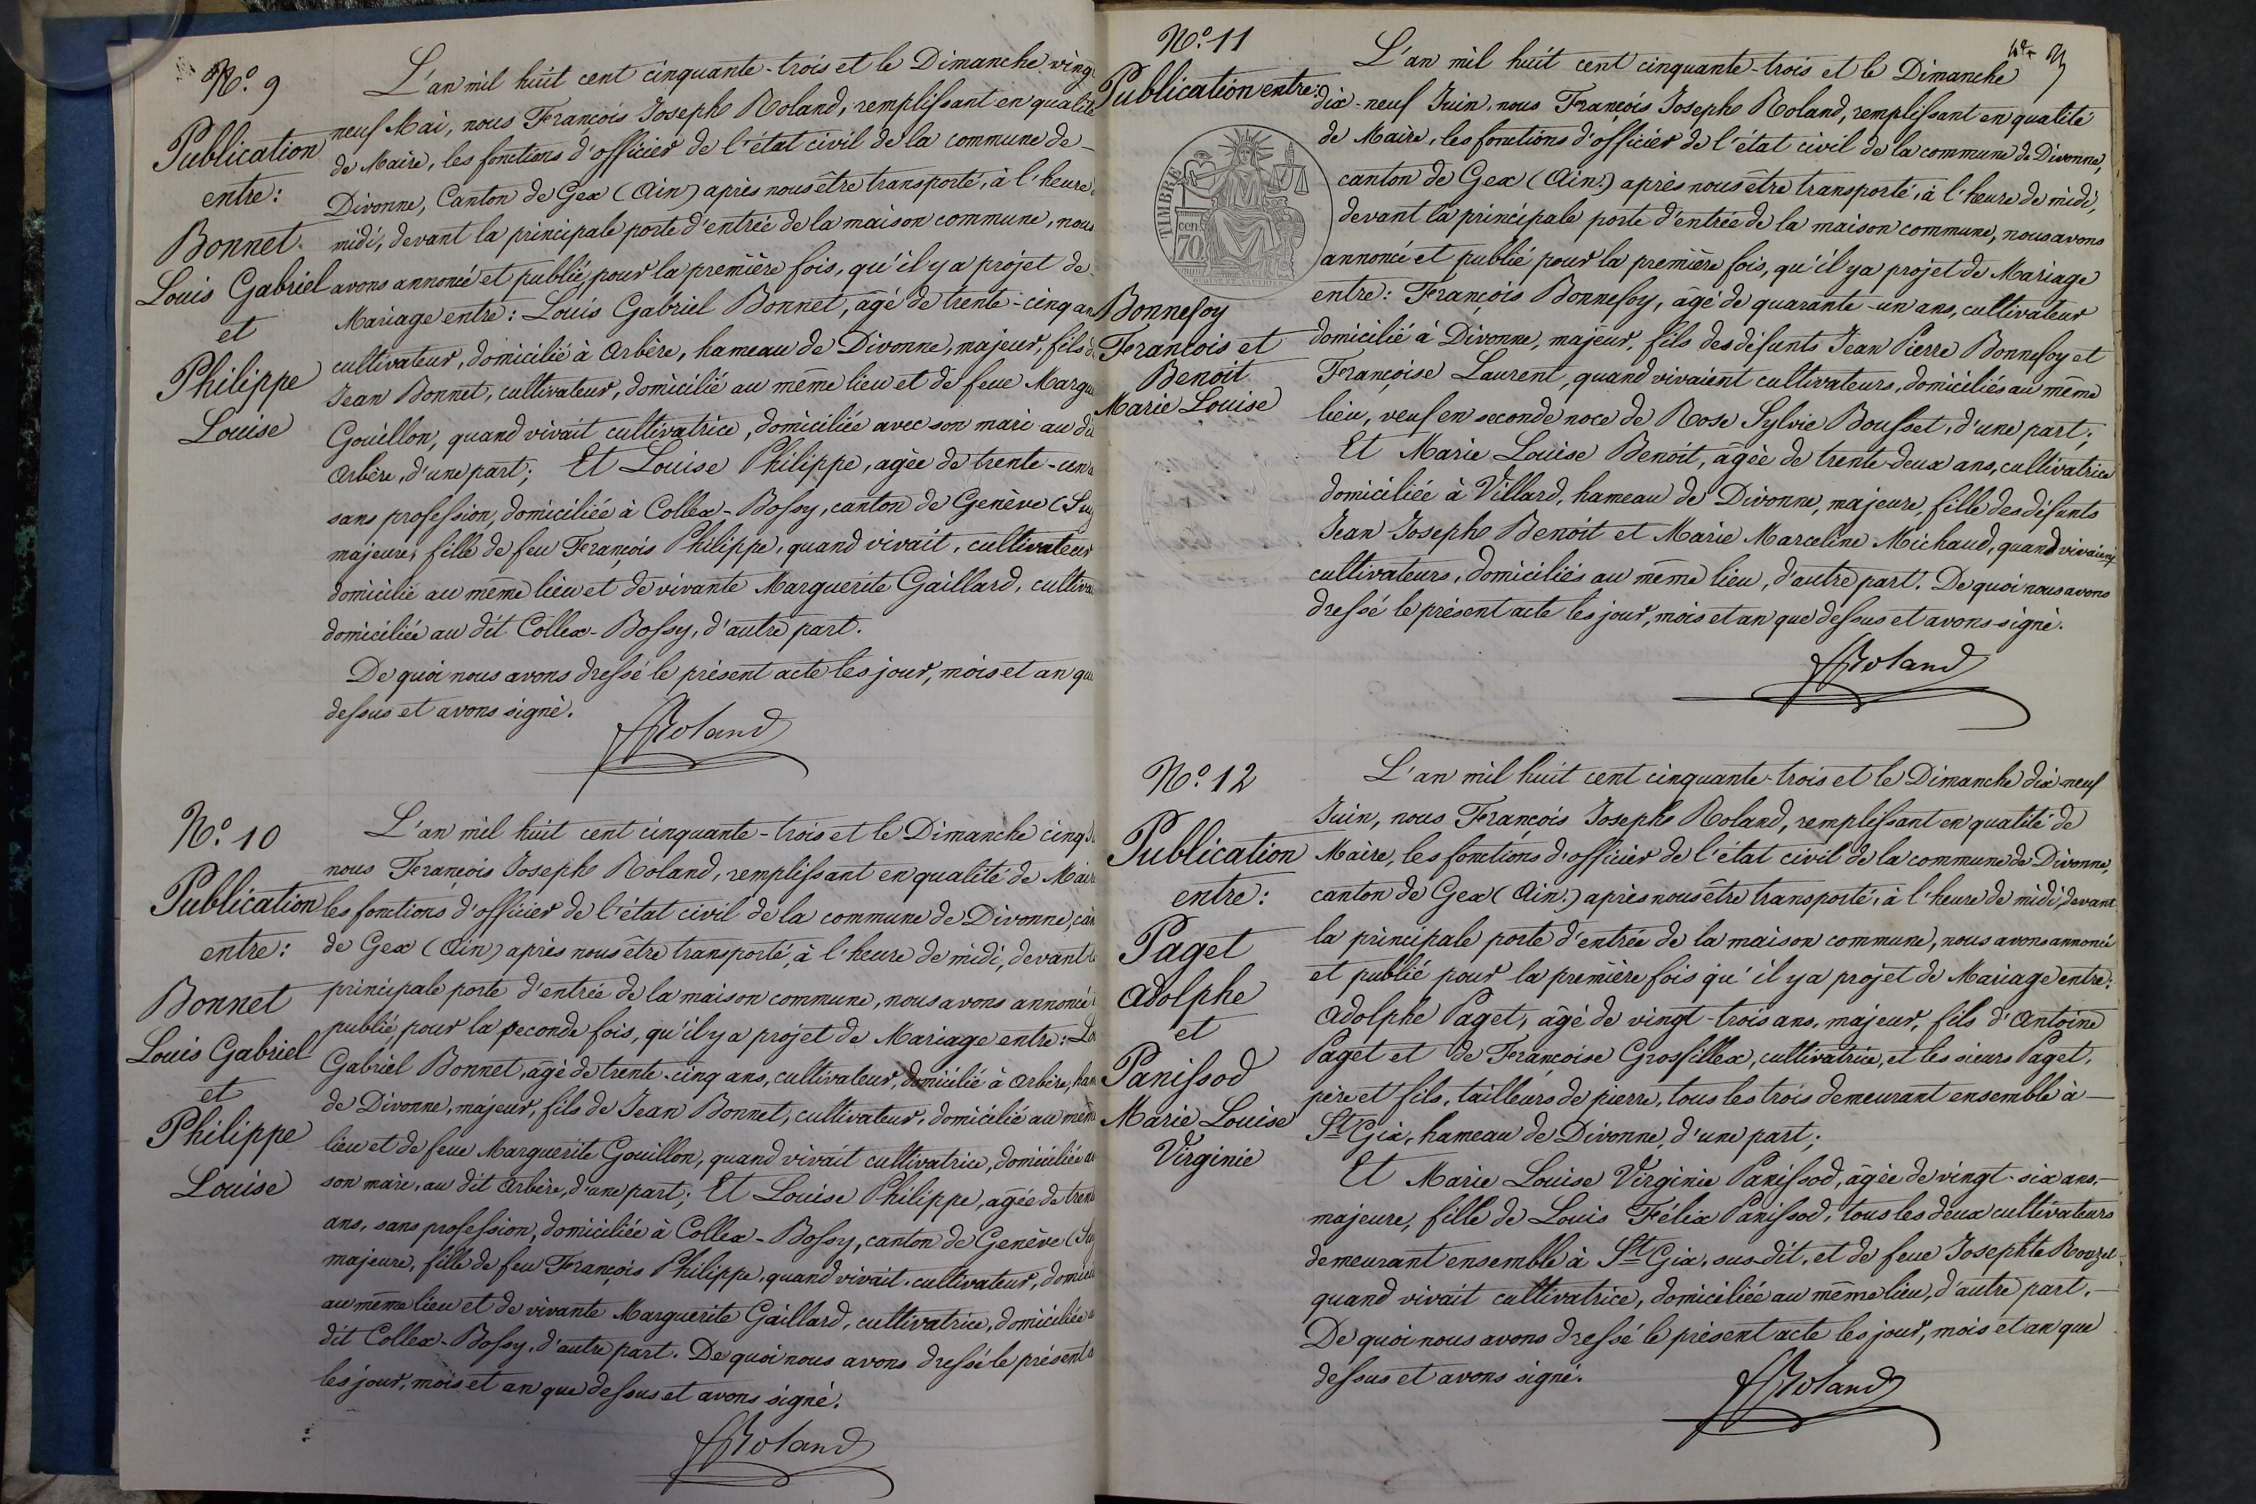 N.º 9
Publication
entre:
Bonnet
Louis Gabriel
et
Philippe
Louise
L'an mil huit cent cinquante-trois et le Dimanche vingt
neuf Mai, nous François Joseph Roland, remplissant en qualité
de Maire, les fonctions d'officier de l'état civil de la commune de
Divonne, Canton de Gex (Ain) après nous être transporté, à l'heure
midi, devant la principale porte d'entrée de la maison commune, nous
avons annoncé et publié, pour la première fois, qu'il y a projet de
Mariage entre: Louis Gabriel Bonnet, âgé de trente-cinq ans
cultivateur, domicilié à Arbère, hameau de Divonne, majeur, fils de
Jean Bonnet, cultivateur, domicilié au même lieu et de feue Margue
Gouillon, quand vivait cultivatrice, domiciliée avec son mari au dit
Arbère, d'une part; Et Louise Philippe, agée de trente-un
sans profession, domiciliée à Collex-Bossy, canton de Genève (Sui
majeure, fille de feu François Philippe, quand vivait, cultivateur
domicilié au même lieu et de vivante Marguerite Gaillard, cultiva
domiciliée au dit Collex-Bossy, d'autre part.
De quoi nous avons dressé le présent acte les jour, mois et an que
dessus et avons signé.
JfRoland
N.º 10
Publication
entre:
Bonnet
Louis Gabriel
et
Philippe
Louise
L'an mil huit cent cinquante-trois et le Dimanche cinq
nous François Joseph Roland, remplissant en qualité de Maire
les fonctions d'officier de l'état civil de la commune de Divonne, can
de Gex (Ain) après nous être transporté, à l'heure de midi, devant la
principale porte d'entrée de la maison commune, nous avons annoncé
publié, pour la seconde fois, qu'il y a projet de Mariage entre: Lo
Gabriel Bonnet, âgé de trente-cinq ans, cultivateur, domicilié à Arbère, ham
de Divonne, majeur, fils de Jean Bonnet, cultivateur, domicilié au même
lieu et de feue Marguerite Gouillon, quand vivait cultivatrice, domiciliée a
son mari, au dit Arbère, d'une part; Et Louise Philippe, agée de trente
ans, sans profession, domiciliée à Collex-Bossy, canton de Genève (Su
majeure, fille de feu François Philippe, quand vivait, cultivateur, domici
au même lieu et de vivante Marguerite Gaillard, cultivatrice, domiciliée a
dit Collex-Bossy, d'autre part. De quoi nous avons dressé le présent a
les jour, mois et an que dessus et avons signé.
JfRoland
N.º 11
Publication entre:
TIMBRE
cen
70
Bonnefoy
François et
Benoit
Marie Louise
L'an mil huit cent cinquante-trois et le Dimanche
dix-neuf Juin, nous François Joseph Roland, remplissant en qualité
de Maire, les fonctions d'officier de l'état civil de la commune de Divonne,
canton de Gex (Ain.) après nous être transporté, à l'heure de midi,
devant la principale porte d'entrée de la maison commune, nous avons
annoncé et publié pour la première fois, qu'il y a projet de Mariage
entre: François Bonnefoy, âgé de quarante-un ans, cultivateur
domicilié à Divonne, majeur, fils des défunts Jean Pierre Bonnefoy et
Françoise Laurent, quand vivaient cultivateurs, domiciliés au même
lieu, veuf en seconde noce de Rose Sylvie Bousset, d'une part;
Et Marie Louise Benoit, âgée de trente-deux ans, cultivatrice
domiciliée à Villard, hameau de Divonne, majeure, fille des défunts
Jean Joseph Benoit et Marie Marceline Michaud, quand vivaient
cultivateurs, domiciliés au même lieu, d'autre part. De quoi nous avons
dressé le présent acte les jour, mois et an que dessus et avons signé.
JfRoland
N.º 12
Publication
entre:
Paget
Adolphe
et
Panissod
Marie Louise
Virginie
L'an mil huit cent cinquante-trois et le Dimanche dix-neuf
Juin, nous François Joseph Roland, remplissant en qualité de
Maire, les fonctions d'officier de l'état civil de la commune de Divonne,
canton de Gex (Ain.) après nous être transporté, à l'heure de midi, devant
la principale porte d'entrée de la maison commune, nous avons annoncé
et publié pour la première fois qu'il y a projet de Mariage entre:
Adolphe Paget, âgé de vingt-trois ans, majeur, fils d'Antoine
Paget et de Françoise Grosfillex, cultivatrice, et les sieurs Paget,
père et fils, tailleurs de pierre, tous les trois demeurant ensemble à
St Gix, hameau de Divonne, d'une part;
Et Marie Louise Virginie Panissod, âgée de vingt-six ans,
majeure, fille de Louis Félix Panissod, tous les deux cultivateurs
demeurant ensemble à St Gix, sus-dit, et de feue Josephte Rouzet
quand vivait cultivatrice, domiciliée au même lieu, d'autre part.
De quoi nous avons dressé le présent acte les jour, mois et an que
dessus et avons signé.
JfRoland